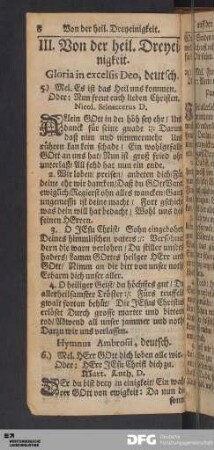 8 Von der heil. Dreyeinigkeit.
III. Von der heil. Dreyei-
nigkeit.
Gloria in excelsis Deo, deutsch.
5.) Mel. Es ist das Heil uns kommen.
Oder: Nun freut euch lieben Christen.
Nicol. Selneccerus D.
Allein GOtt in der höh sey ehr/ Und
danck für seine gnade/ Darum
daß nun und nimmermehr Uns
rühren kan kein schade/ Ein wohlgefalln
GOtt an uns hat/ Nun ist groß fried ohn
unterlaß/ All fehd hat nun ein ende.
2. Wir loben preisen/ anbeten dich/ Für
deine ehr wir dancken/ Daß du GOtt Vater
ewiglich/ Regierst ohn alles wancken/ Gantz
ungemessn ist deine macht/ Fort gschicht
was dein will hat bedacht; Wohl uns des
feinen HErren.
3. O JEsu Christ/ Sohn eingebohrn
Deines himmlischen vaters/ Versöhner
derer die waren verlohrn/ Du stiller unsers
haders/ Lamm GOttes heilger HErr und
GOtt/ Nimm an die bitt von unser noth/
Erbarm dich unser aller.
4. O heiliger Geist/ du höchstes gut/ Du
allerheilsamster Tröster/ Fürs teuffels
gwalt fortan behüt/ Die JEsus Christus
erlöset Durch grosse marter und bittern
tod/ Abwend all unser jammer und noth/
Darzu wir uns verlassen.
Hymnus Ambrosii, deutsch.
6.) Mel. HErr GOtt dich loben alle wir.
Oder: HErr JEsu Christ dich zu.
Mart. Luth. D.
Der du bist drey in einigkeit/ Ein wah-
rer GOtt von ewigkeit; Die
SLUB
DFG
Deutsche
Forschungsgemeinschaft